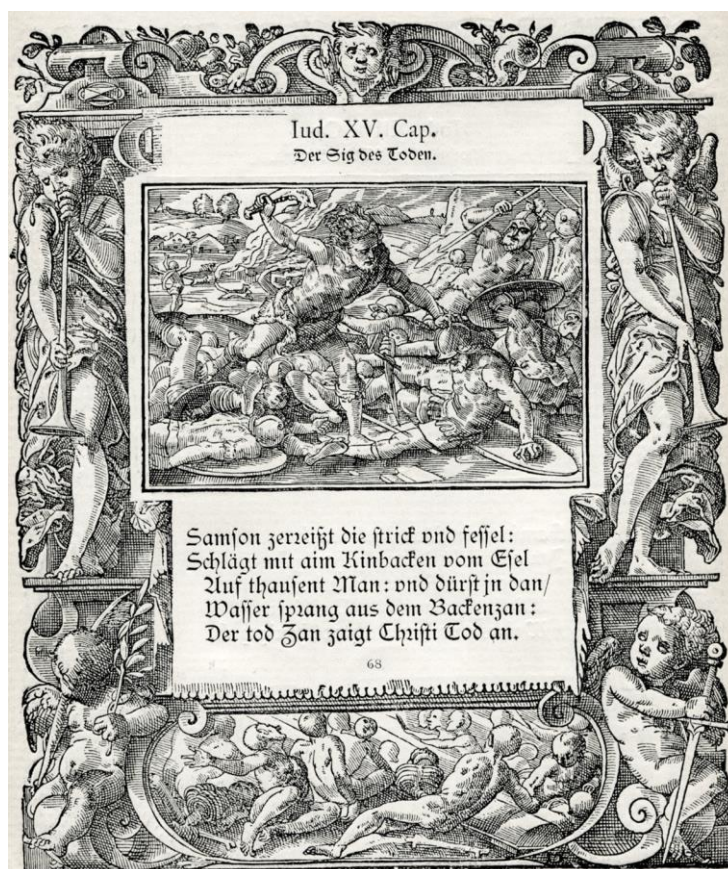 Iud. XV. Cap.
Der Sig des Toden.
Samson zerreißt die strick vnd fessel:
Schlägt mit aim Kinbacken vom Esel
Auf thausent Man: vnd dürst jn dan/
Wasser sprang aus dem Backenzan:
Der tod Zan zaigt Christi Tod an.
68